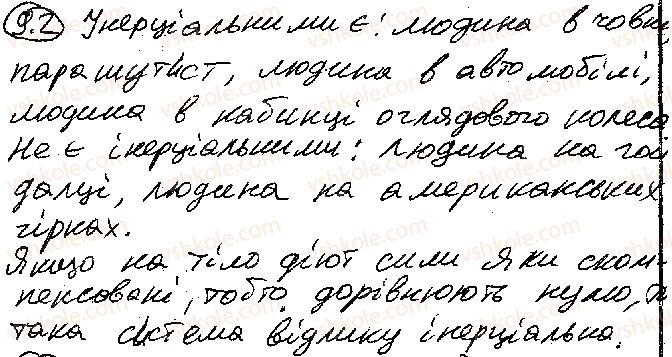 9.2 Інерціальними є: людина в човні,
парашутист, людина в автомобілі,
людина в кабинці оглядового колеса
Не є інерціальними: людина на гой
далці, людина на американських
гірках.
Якщо на тіло діют сили яки ском-
пенсовані, тобто дорівнюють нулю, то
така система відлику інерціальна.